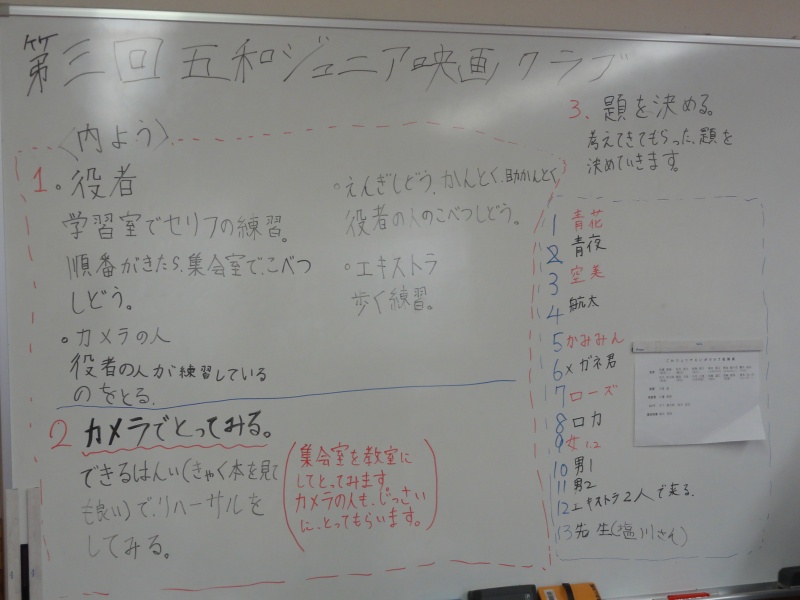 第三回五和ジュニア映画クラブ
〈内よう〉
1。役者
学習室でセリフの練習。
順番がきたら、集会室で、こべつ
しどう。
。カメラの人
役者の人が練習している
のをとる。
。えんぎしどう、かんとく、助かんとく
役者の人のこべつしどう。
。エキストラ
歩く練習。
2 カメラでとってみる。
できるはんい(きゃく本を見て
も良い)で、リハーサルを
してみる。
(集会室を教室に
してとってみます
カメラの人も、じっさい
に、とってもらいます。)
3. 題を決める。
考えてきてもらった、題を
決めていきます。
1 青花
2 青夜
3 空美
4 航太
5 かみみん
6 メガネ君
7 ローズ
8 ロカ
9 女1.2
10 男1
11 男2
12 エキストラ2人で走る.
13 先生(塩川さん)